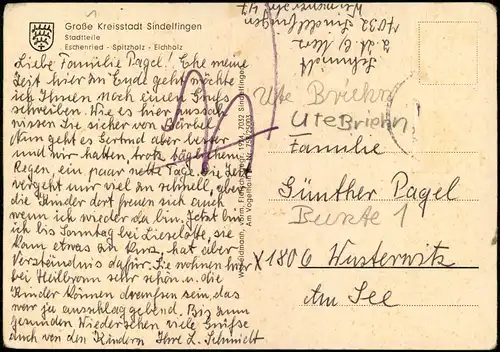 Große Kreisstadt Sindelfingen
Stadtteile
Eschenried - Spitzholz - Eichholz
Liebe Familie Pagel! Ehe meine
Zeit hier zu Ende geht möchte
ich Ihnen noch einen Gruß
schreiben. Wie es hier aussah
wissen Sie sicher von Bärbel
Nun geht es Gertrud aber besser
und wir hatten, trotz täglichem
Regen, ein paar nette Tage. Die Zeit
vergeht nur viel zu schnell, aber
die Kinder dort freuen sich auch
wenn ich wieder da bin. Jetzt bin
ich bis Sonntag bei Lieselotte, sie
kam etwas zu kurz, hat aber
Verständnis dafür. Sie wohnen hier
bei Heilbronn sehr schön u. die
Kinder können draußen sein, das
war ja ausschlaggebend. Bis zum
gesunden Wiedersehen viele Grüße
auch von den Kindern Ihre L. Schmidt
Schmidt
7032 Sindelfingen
Ute Briehn
Ute Briehn
Familie
Günther Pagel
1
X1806 Wusterwitz
Am See